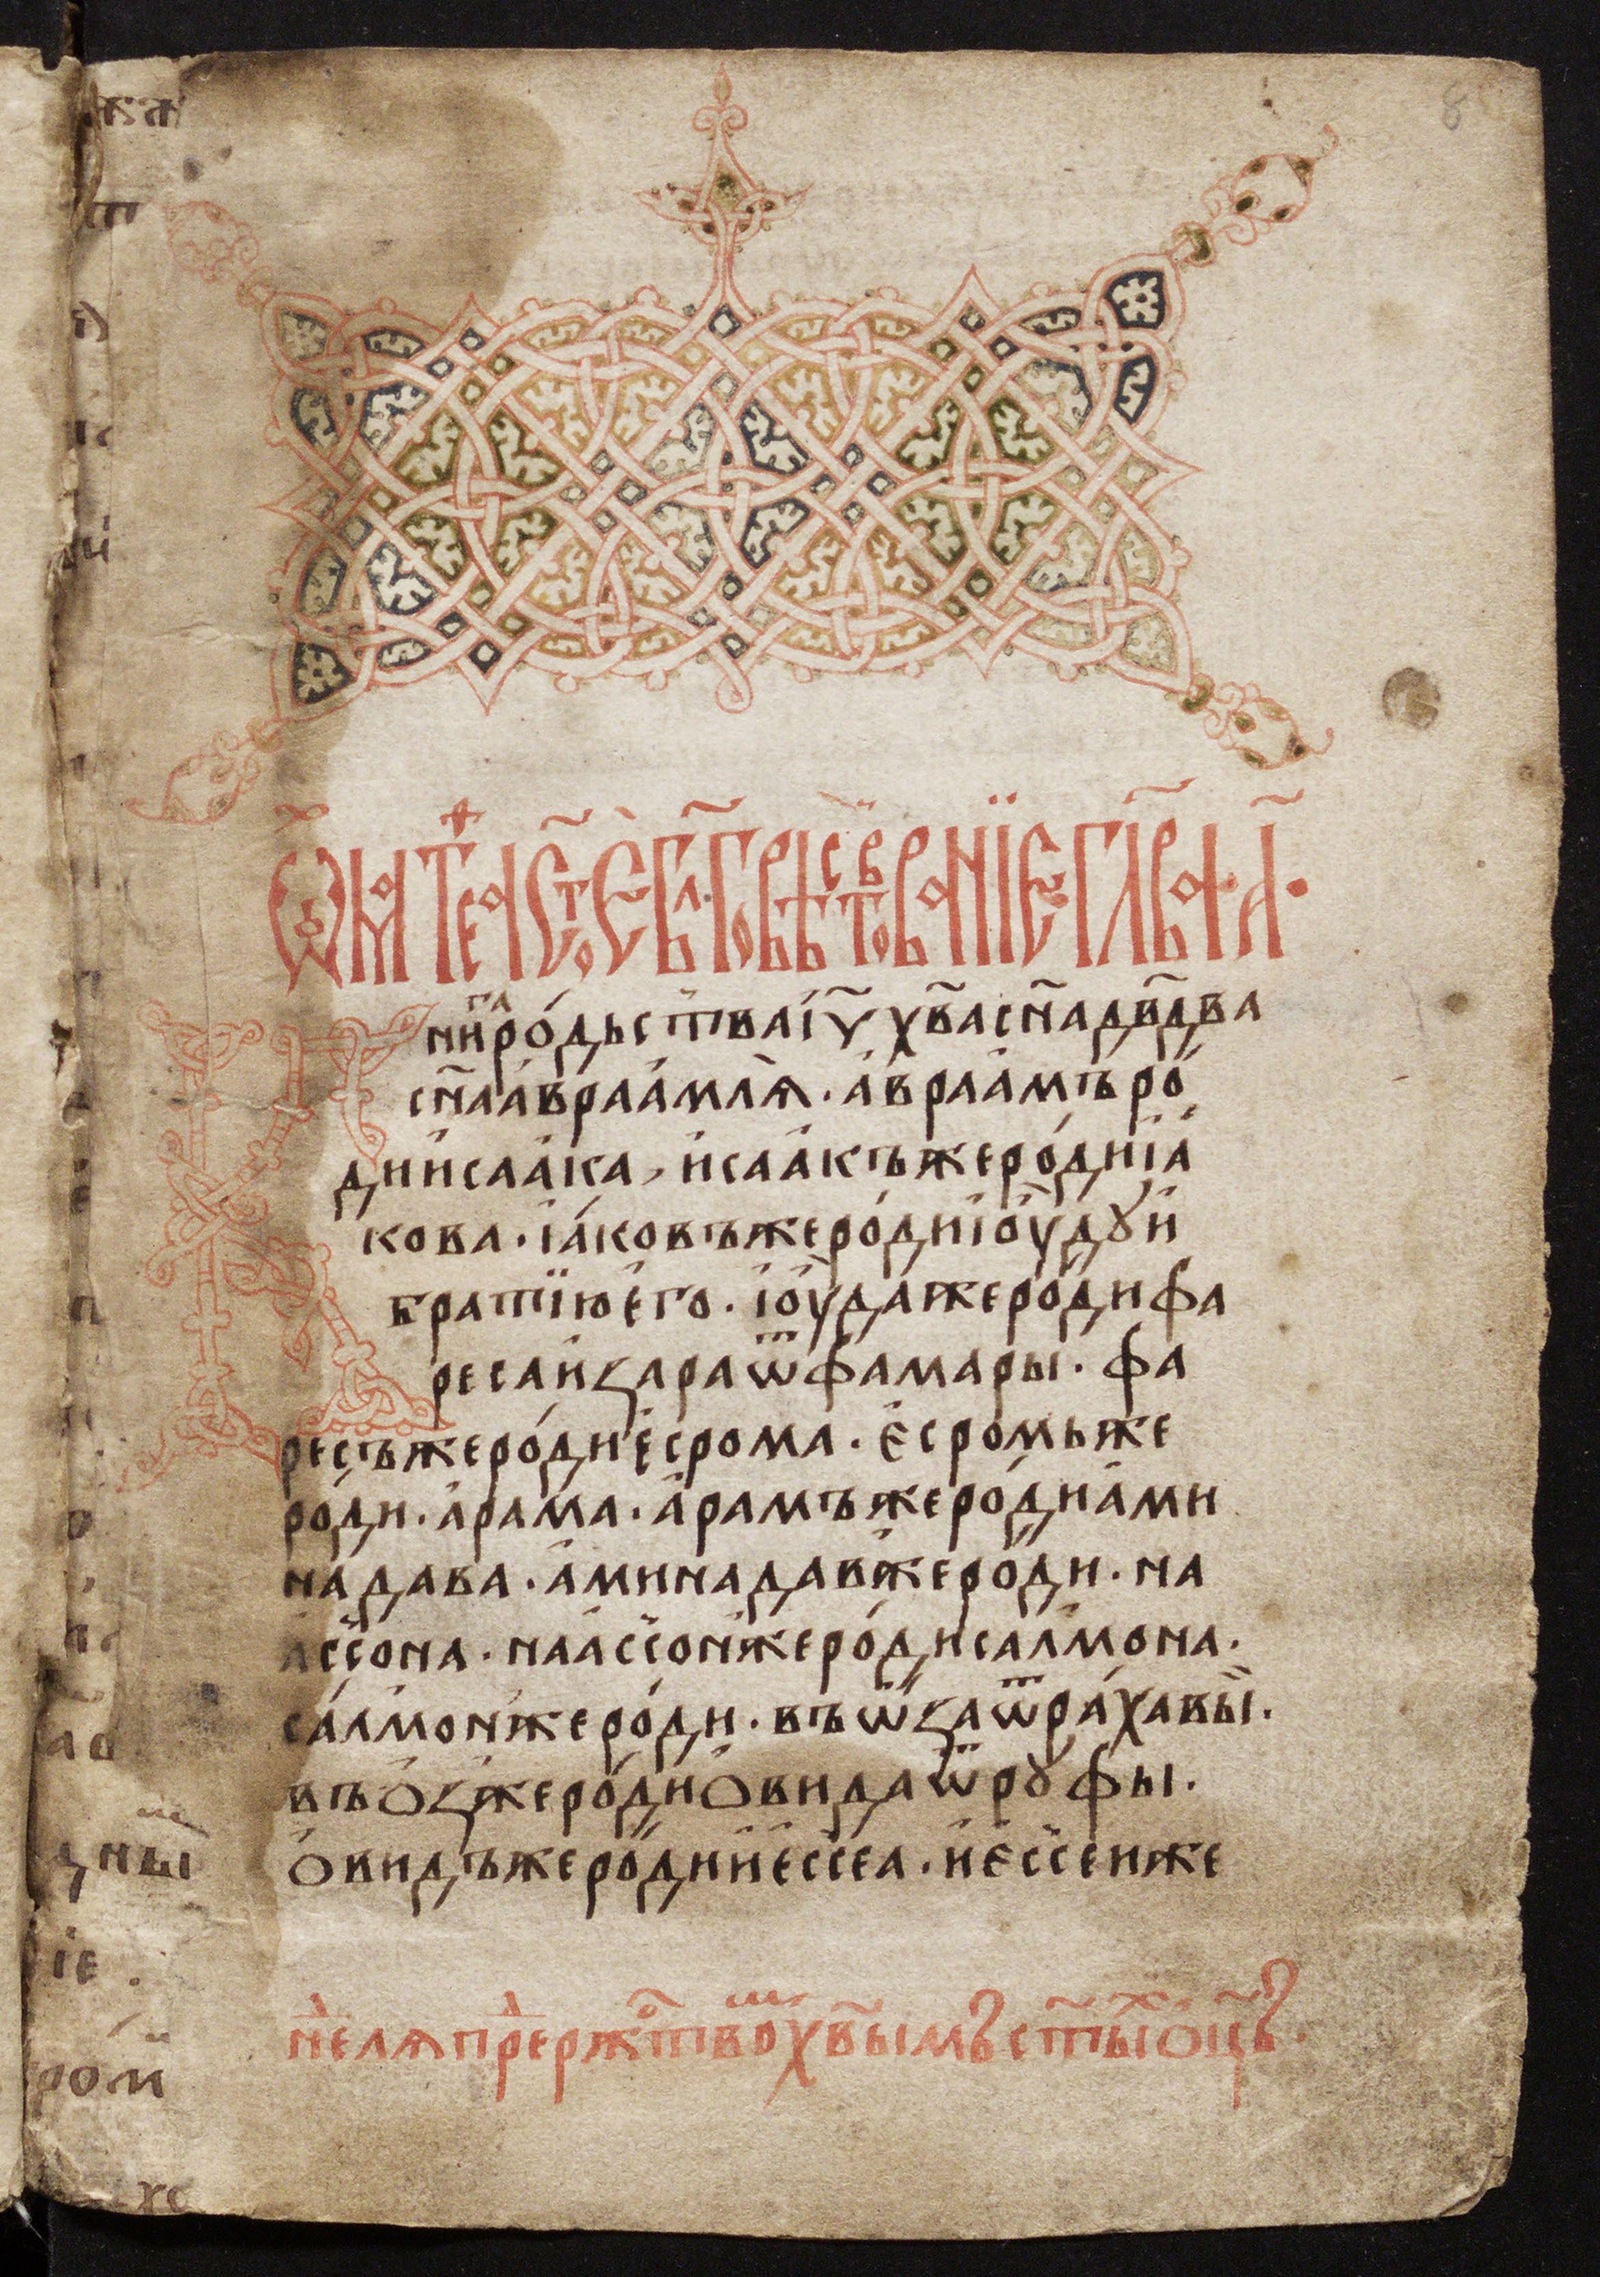 8
Ѿ маⷴ҇ѳеа ст҃ое еѵⷢ҇лїе перⷡ҇ѣ сътворенїе глаⷡ҇ а҃
К нигꙋ ро́дьства і҃ѵ хв҃а сн҃а дв҃два
сн҃а а҆враа́млѧ · а҆враа́мъ ро́
ди и҆саа́ка · и҆саа́къ же ро́ди і҆а́
кова · і҆а́ковъ же ро́ди і҆ѹ́дꙋ и҆
братїю е҆го · і҆ѹ́да же ро́ди фа
реса и҆ зара ѿ фамары · фа
ресъ же ро́ди е҆срома · е҆сромь же
ро́ди · а҆ра́ма · а҆рамъ же ро́ди а҆ми
надава · а҆минадав же ро́ди · на
ассона · наассон же ро́ди салмона ·
са́лмон же ро́ди · въѡза ѿ ра́хавы ·
въоз же ро́ди ѻвида ѿ рꙋфы ·
ѻвидъ же ро́ди и҆ессеа · и҆ессеи же
неⷣ҇лѧ преⷣ҇ ржⷭ҇твоⷨ҇ хв҃ымъ ст҃ыⷯ҇ ѻц҃ъ ·